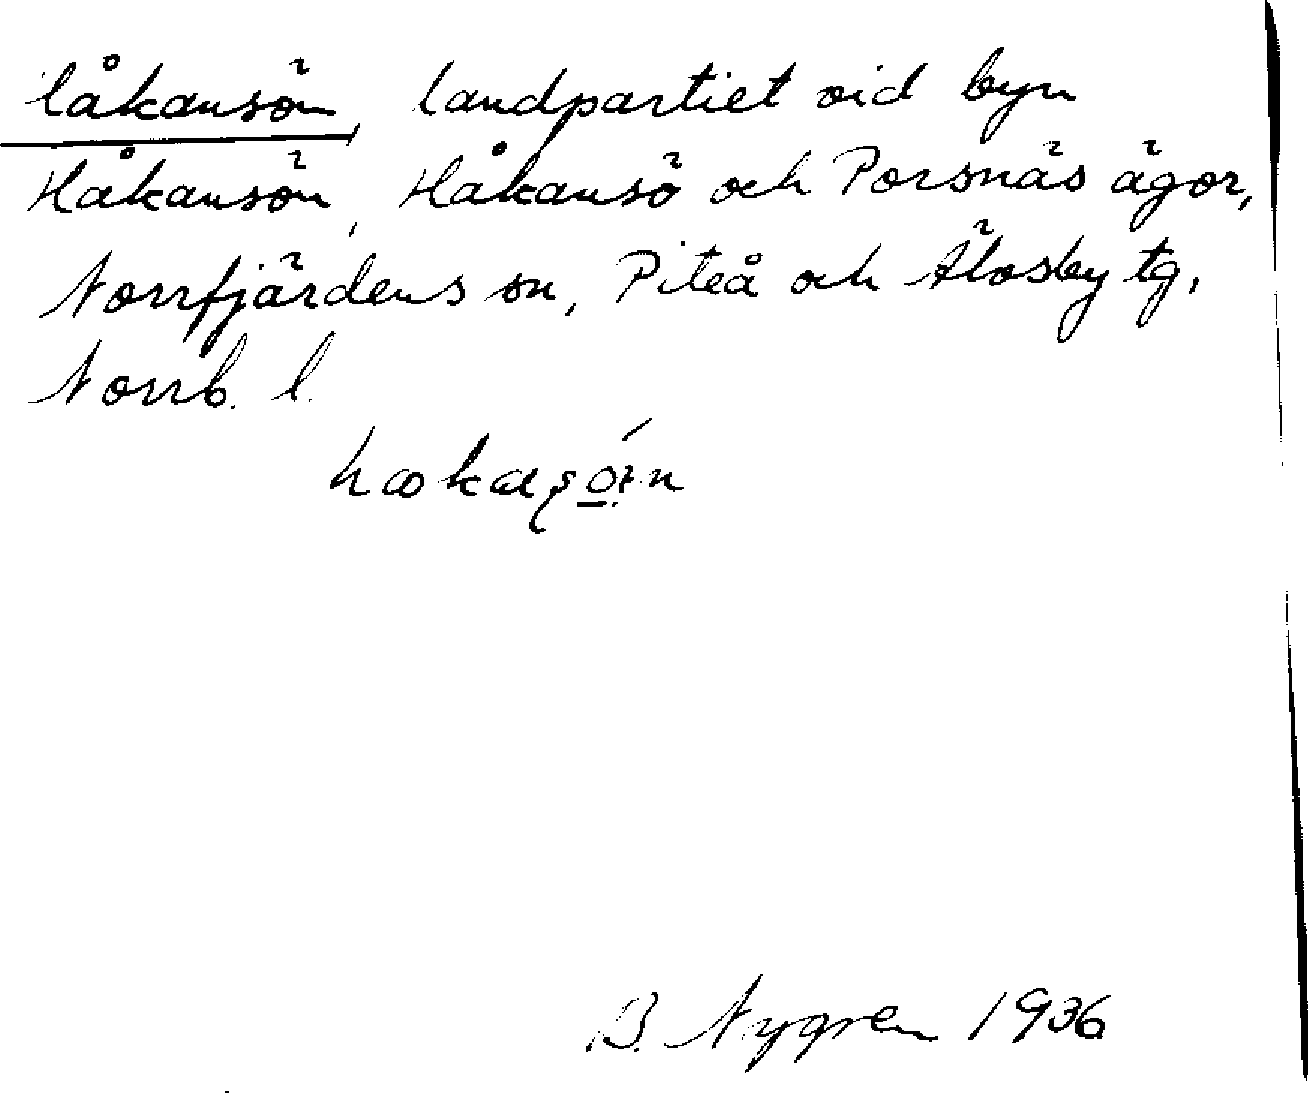 Håkansön, landpartiet vid byn
Håkansön, Håkansö och Porsnäs ägor,
Norrfjärdens sn, Piteå och Älvsby tg,
Norrb. l.
B. Nygren 1936